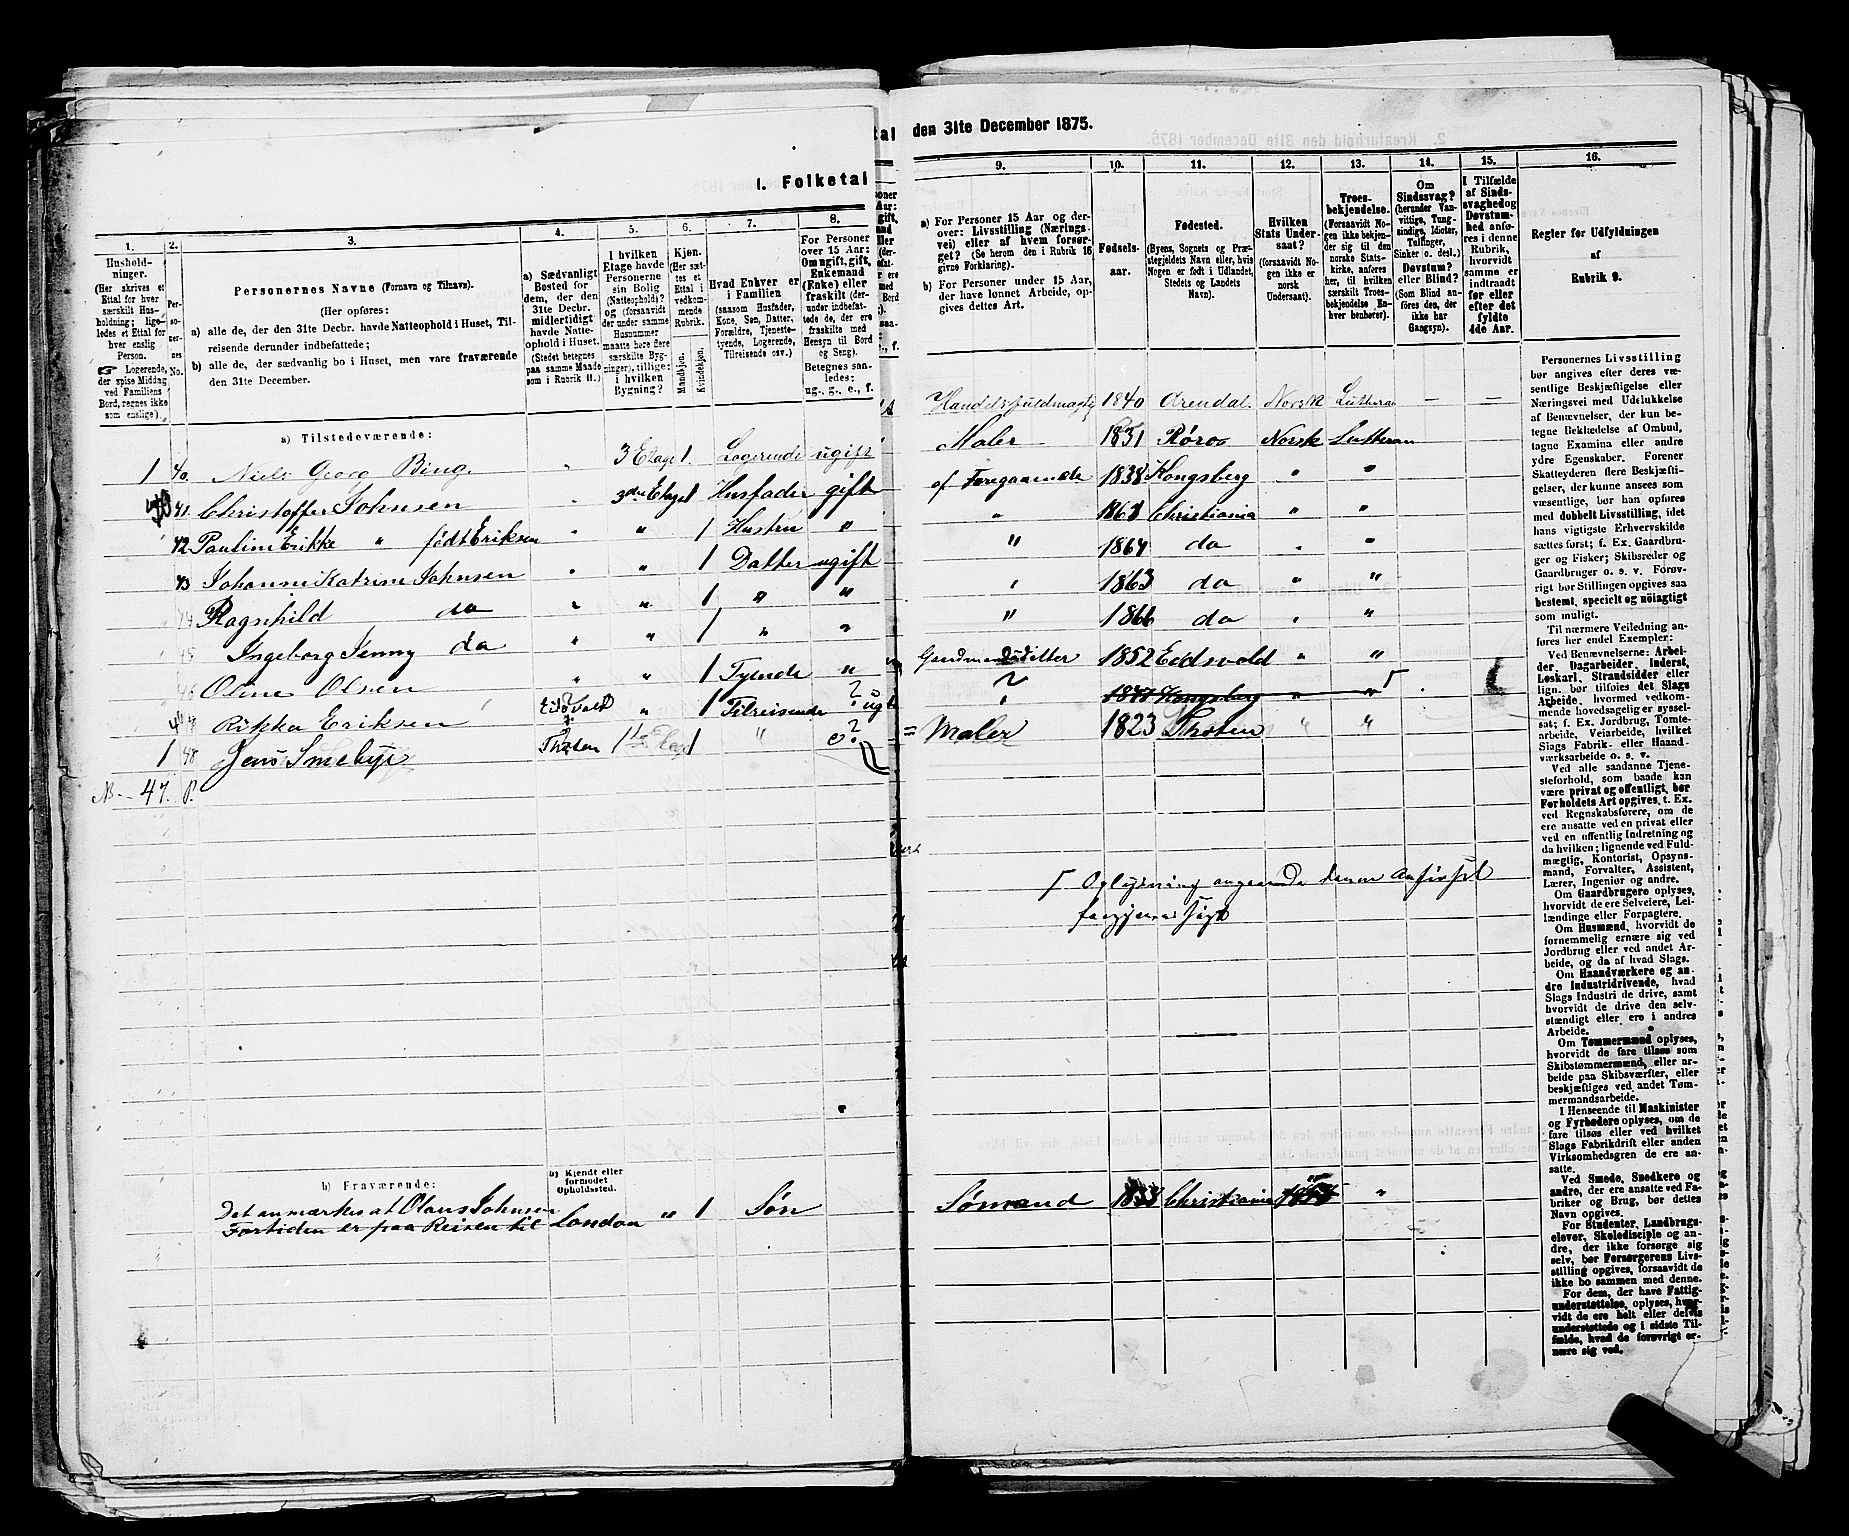 I. Folketal
1.
Hushold-
ninger.
(Her skrives et
Ettal for hver
særskilt Hus-
holdning; lige-
ledes et Ettal for
hver enslig
Person.
Logerende,
der spise Middag
ved Familiens
Bord, regnes ikke
som enslige).
2.
Per-
so-
ner-
nes
No.
3.
Personernes Navne (Fornavn og Tilnavn).
(Her opføres:
a) alle de, der den 31te Decbr. havde Natteophold i Huset, Til-
reisende derunder indbefattede;
b) alle de, der sædvanlig bo i Huset, men vare fraværende
den 31te December.
4.
a) Sædvanligt
Bosted for
dem, der den
31te Decbr.
midlertidigt
havde Natte-
ophold i Huset.
(Stedet betegnes
paa samme Maade
som i Rubrik 11.)
5.
I hvilken
Etage havde
Personerne
sin Bolig
(Natteophold)?
og (forsaavidt
der under samme
Husnummer
maatte høre flere
særskilte Byg-
ninger), tillige:
i hvilken
Bygning?
6.
Kjøn.
(Her sæt-
tes et
Ettal i
vedkom-
mende
Rubrik.
Mandkjøn.
Kvindekjøn.
7.
Hvad Enhver er
i Familien
(saasom Husfader,
Kone, Søn, Datter,
Forældre, Tjeneste-
tyende, Logerende,
Tilreisende osv.)
8.
For Personer
over 15 Aar:
Om ugift, gift,
Enkemand
(Enke) eller
fraskilt (der-
under indbefat-
tede de, der ere
fraskilte med
Hensyn til Bord
og Seng).
Betegnes saa-
ledes:
ug., g., e., f.
a) Tilstedeværende:
1 40. Niels Georg Bing. 3 Etage 1. Logerende ugift
41. Christoffer Johnsen 3die Etage 1 Husfader gift
42 Pauline Erikke " født Eriksen " 1 Hustru "
43 Johanne Katrine Johnsen " 1 Datter ugift
44 Ragnhild da " 1 " "
45 Ingeborg Jenny da " " 1 " "
46 Oline Olsen " " 1 Tyende "
Rikka Eriksen " 1 Tilreisende ? ug
1 48 Jens Smebye 1 " e ?
47. P.
b) Fraværende:
b) Kjendt eller
formodet
Opholdssted.
Det anmærkes at Olaus Johnsen
Fortiden er paa Reisen til London " 1 Søn
den 31te December 1875.
9.
a) For Personer 15 Aar og der-
over: Livsstilling (Nærings-
vei) eller af hvem forsør-
get? (Se herom den i Rubrik 16
givne Forklaring).
b) For Personer under 15 Aar,
der have lønnet Arbeide, op-
gives dettes Art.
10.
Fødsels-
aar.
11.
Fødested.
(Byens, Sognets og Præ-
stegjeldets Navn eller, hvis
Nogen er født i Udlandet,
Stedets og Landets
Navn).
12.
Hvilken
Stats Under-
saat?
(forsaavidt No-
gen ikke er
norsk
Undersaat).
13.
Troes-
bekjendelse.
(Forsaavidt No-
gen ikke bekjen-
der sig til den
norske Stats-
kirke, anføres
her, til hvilken
særskilt Troes-
bekjendelse En-
hver henhører).
14.
Om
Sindssvag?
(herunder Van-
vittige, Tung-
sindige, Idioter,
Tulfinger,
Sinker o. desl.)
Døvstum?
eller Blind?
(Som Blind an-
føres den, der
ikke har
Gangsyn).
15.
I Tilfælde
af Sinds-
svaghed og
Døvstum-
hed anfø-
res i denne
Rubrik,
hvorvidt
samme er
indtraadt
før eller
efter det
fyldte
4de Aar.
16.
Regler for Udfyldningen
af
Rubrik 9.
Handelsfuldmægtig 1840 Arendal. Norsk Lutheran — —
Maler 1831 Røros Norsk Lutheran
af Foregaaende 1838 Kongsberg " "
" Christiania " "
" 1864 da " "
" 1863 da " "
" 1866 da " "
1852 Eidsvold " "
? Kongsberg " "
= Maler 1823 " "
Oplysning angaaende denne
Sømand Christiania "
Personernes Livsstilling
bør angives efter deres væ-
sentlige Beskjæftigelse eller
Næringsvei med Udelukkelse
af Benævnelser, der kun be-
tegne Beklædelse af Ombud,
tagne Examina eller andre
ydre Egenskaber. Forener
Skatteyderen flere Beskjæfti-
gelser, der kunne ansees som
væsentlige, bør han opføres
med dobbelt Livsstilling, idet
hans vigtigste Erhvervskilde
sættes først; f. Ex. Gaardbru-
ger og Fisker; Skibsreder og
Gaardbruger o. s. v. Forøv-
rigt bør Stillingen opgives saa
bestemt, specielt og nöiagtigt
som muligt.
Til nærmere Veiledning an-
føres her endel Exempler:
Ved Benævnelserne: Arbei-
der, Dagarbeider, Inderst,
Løskarl, Strandsidder eller
lign. bør tilføies det Slags
Arbeide, hvormed vedkom-
mende hovedsagelig er syssel-
sat; f. Ex. Jordbrug, Tomte-
arbeide, Veiarbeide, hvilket
Slags Fabrik- eller Haand-
værksarbeide o. s. v.
Ved alle saadanne Tjene-
steforhold, som baade kan
være privat og offentligt, bør
Forholdets Art opgives, t. Ex.
ved Regnskabsførere, om de
ere ansatte ved en privat eller
ved en offentlig Indretning og
da hvilken; lignende ved Fuld-
mægtig, Kontorist, Opsyns-
mand, Forvalter, Assistent,
Lærer, Ingeniør og andre.
Om Gaardbrugere oplyses,
hvorvidt de ere Selveiere, Lei-
lændinge eller Forpagtere.
Om Husmænd, hvorvidt de
fornemmelig ernære sig ved
Jordbrug eller ved andet Ar-
beide, og da af hvad Slags.
Om Haandværkere og an-
dre Industridrivende, hvad
Slags Industri de drive, samt
hvorvidt de drive den selv-
stændigt eller ere i andres
Arbeide.
Om Tømmermænd oplyses,
hvorvidt de fare tilsøs som
Skibstømmermænd, eller ar-
beide paa Skibsværfter, eller
beskjæftiges ved andet Tøm-
mermandsarbeide.
I Henseende til Maskinister
og Fyrbødere oplyses, om de
fare tilsøs eller ved hvilket
Slags Fabrikdrift eller anden
Virksomhedsgren de ere an-
satte.
Ved Smede, Snedkere og
andre, der ere ansatte ved Fa-
briker og Brug, bør dettes
Navn opgives.
For Studenter, Landbrugs-
elever, Skoledisciple og an-
dre, der ikke forsørge sig
selv, bør Forsørgerens Livs-
stilling opgives, forsaavidt de
ikke bo sammen med denne.
For dem, der have Fattig-
understøttelse, oplyses, hvor-
vidt de ere helt eller delvis
understøttede og i sidste Til-
fælde, hvad de forøvrigt er-
nære sig ved.